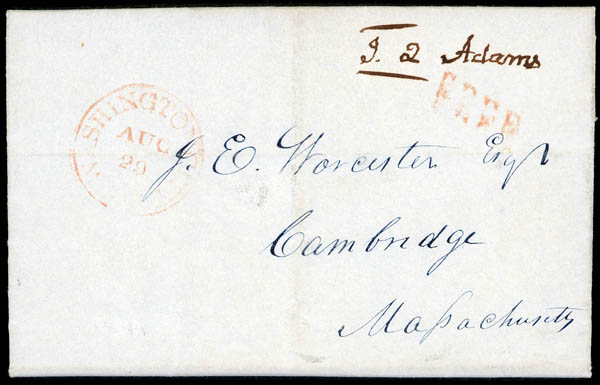 J. Q Adams
FREE
WASHINGTON
AUG
29
J. E. Worcester Esqr
Cambridge
Massachusetts